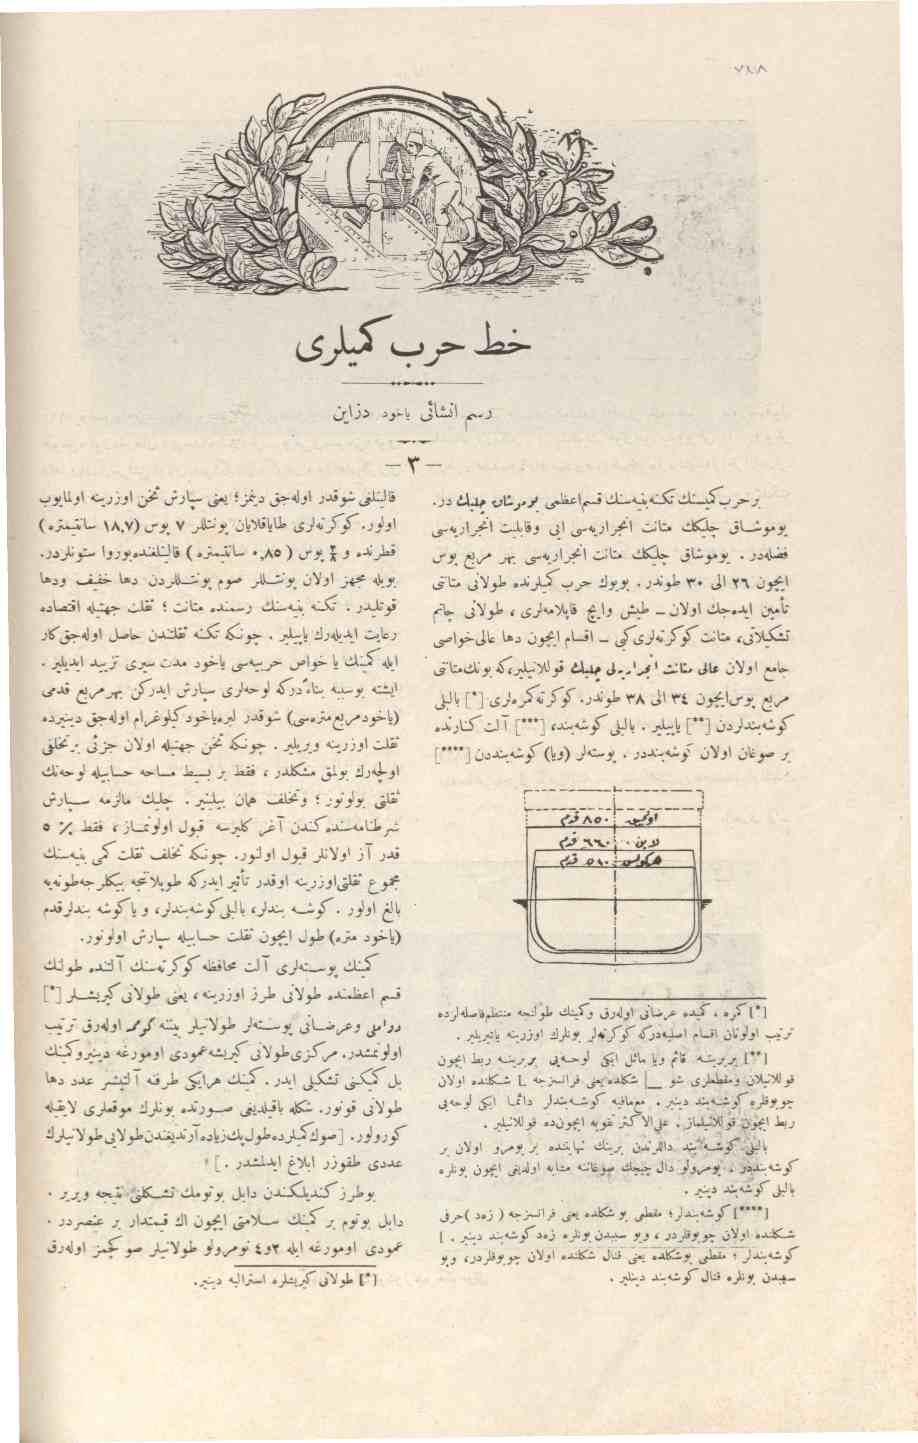 ٧٨٨
خط حرب كميلرى
رسم انشائى ياخود دزاين
— ٣ —
بر حرب كميسنك تكنه بنيه‌سنك قسم اعظمى يوموشاق چليك در.
يوموشاق چليكك متانت انجراريه‌سى ايى وقابليت انجراريه‌سى
فضله‌در . يوموشاق چليكك متانت انجراريه‌سى بهر مربع پوس
ايچون ٢٦ الى ٣٠ طوندر. بويوك حرب كميلرنده طولانى متانتى
تأمين ايده‌جك اولان – طيش وايچ قاپلامه‌لرى ، طولانى چاتم
تشكيلاتى، متانت كوكرته‌لرى كبى – اقسام ايچون دها عالى خواصى
جامع اولان عالى متانت انجراريه‌لى چليك قوللانيلير، كه بونك متانتى
مربع پوس ايچون ٣٤ الى ٣٨ طوندر. كوكرته كمره‌لرى [*] بالبلى
كوشه‌بندلردن [**] ياپيلير . بالبلى كوشه‌بند، [***] آلت كنارنده
بر صوغان اولان كوشه‌بنددر . پوسته‌لر (ويا) كوشه‌بنددن [****]
اونجيى ٨٥٠ قدم
لاين ٦٦٠ قدم
هركوليس ٥١٠ قدم
[*] كمره ، كميده عرضانى اوله‌رق وكمينك طولنجه منتظم فاصله‌لرده
ترتيب اولونان اقسام اصليه‌دركه كوكرته‌لر بونلرك اوزرينه ياتيريلير .
[**] بربرينه قائم ويا مائل ايكى لوحه‌يى بربرينه ربط ايچون
قوللانيلان ومقطعلرى شو _| شكلده يعنى فرانسزجه L شكلنده اولان
چوبوقلره كوشه‌بند دينير . مع‌مافيه كوشه‌بندلر دائما ايكى لوحه‌يى
ربط ايچون قوللانيلماز . على الاكثر تقويه ايچون ده قوللانيلير .
بالبلى كوشه بند داللرندن برينك نهايتنده بر يومرو اولان بر
كوشه‌بنددر ، يومرولو دال چيچك صوغاننه مشابه اولديغى ايچون بونلره
بالبلى كوشه‌بند دينير .
[****] كوشه‌بندلر؛ مقطعى بو شكلده يعنى فرانسزجه ( زه‌د ) حرفى
شكلنده اولان چوبوقلردر ، وبو سببدن بونلره زه‌د كوشه‌بند دينير . [
كوشه‌بندلر ؛ مقطعى بوشكلده يعنى قنال شكلنده اولان چوبوقلردر، وبو
سببدن بونلره قنال كوشه‌بند دينلير .
قالينلغى شوقدر اوله‌جق دينمز؛ يعنى سپارش ثخن اوزرينه اولمايوب
اولور. كوكرته‌لرى طاياقلايان پونتللر ٧ پوس (١٨،٧ سانتيمتره)
قطرنده و پوس (٠،٨٥ سانتيمتره) قالينلغنده بوروا ستونلردر.
بويله مجهز اولان پونتللر صوم پونتللردن دها خفيف ودها
قوتليدر . تكنه بنيه‌سنك رسمنده متانت ؛ ثقلت جهتيله اقتصاده
رعايت ايديله‌رك ياپيلير . چونكه تكنه ثقلتندن حاصل اوله‌جق كار
ايله كمينك يا خواص حربيه‌سى ياخود مدت سيرى تزييد ايديلير .
ايشته بوسببه بناءً دركه لوحه‌لرى سپارش ايدركن بهر مربع قدمى
(ياخود مربع متره‌سى) شوقدر ليبره ياخود كيلوغرام اوله‌جق دينيرده
ثقلت اوزرينه ويريلير . چونكه ثخن جهتيله اولان جزئى بر تخلفى
اولچه‌رك بولمق مشكلدر ، فقط بر بسيط مساحه حسابيله لوحه‌نك
ثقلتى بولونور ؛ وتخلف همان بيلينير . چليك مالزمه سپارش
شرطنامه‌سنده‌كندن آغر كليرسه قبول اولونماز ، فقط ٪ ٥
قدر آز اولانلر قبول اولنور. چونكه تخلف ثقلت كمى بنيه‌سنك
مجموع ثقلتى اوزرينه اوقدر تأثير ايدركه طوپلاننجه بيكلرجه طونه‌يه
بالغ اولور . كوشه بندلر، بالبلى كوشه‌بندلر، و يا كوشه بندلر قدم
(ياخود متره) طول ايچون ثقلت حسابيله سپارش اولونور.
كمينك پوسته‌لرى آلت محافظه كوكرته‌سنك آلتنده طولك
قسم اعظمنده طولانى طرز اوزرينه ، يعنى طولانى كريشلر [*]
وعرضانى پوسته‌لر طولانيلر بيننه اوله‌رق ترتيب
اولونمشدر. مركزى طولانى كريشه عمودى اومورغه دينيروكمينك
بل كميكنى تشكيل ايدر . كمينك هرايكى طرفنه آلتيشر عدد دها
طولانى قونور. شكله باقيلديغى صورتده بونلرك موقعلرى لايقيله
كورولور. [صوك كميلرده طول پك زياده آرتديغندن طولايى طولانيلرك
عددى طقوزر ابلاغ ايدلمشدر .]
بوطرز كنديلكندن دابل بوتومك تشكلنى نتيجه ويرير .
دابل بوتوم بر كمينك سلامتى ايچون اك قيمتدار بر عنصردر .
عمودى اومورغه ايله ٢و٤ نومرولو طولانيلر صو كچمز اوله‌رق
[*] طولانى كريشلره استراليه دينير.